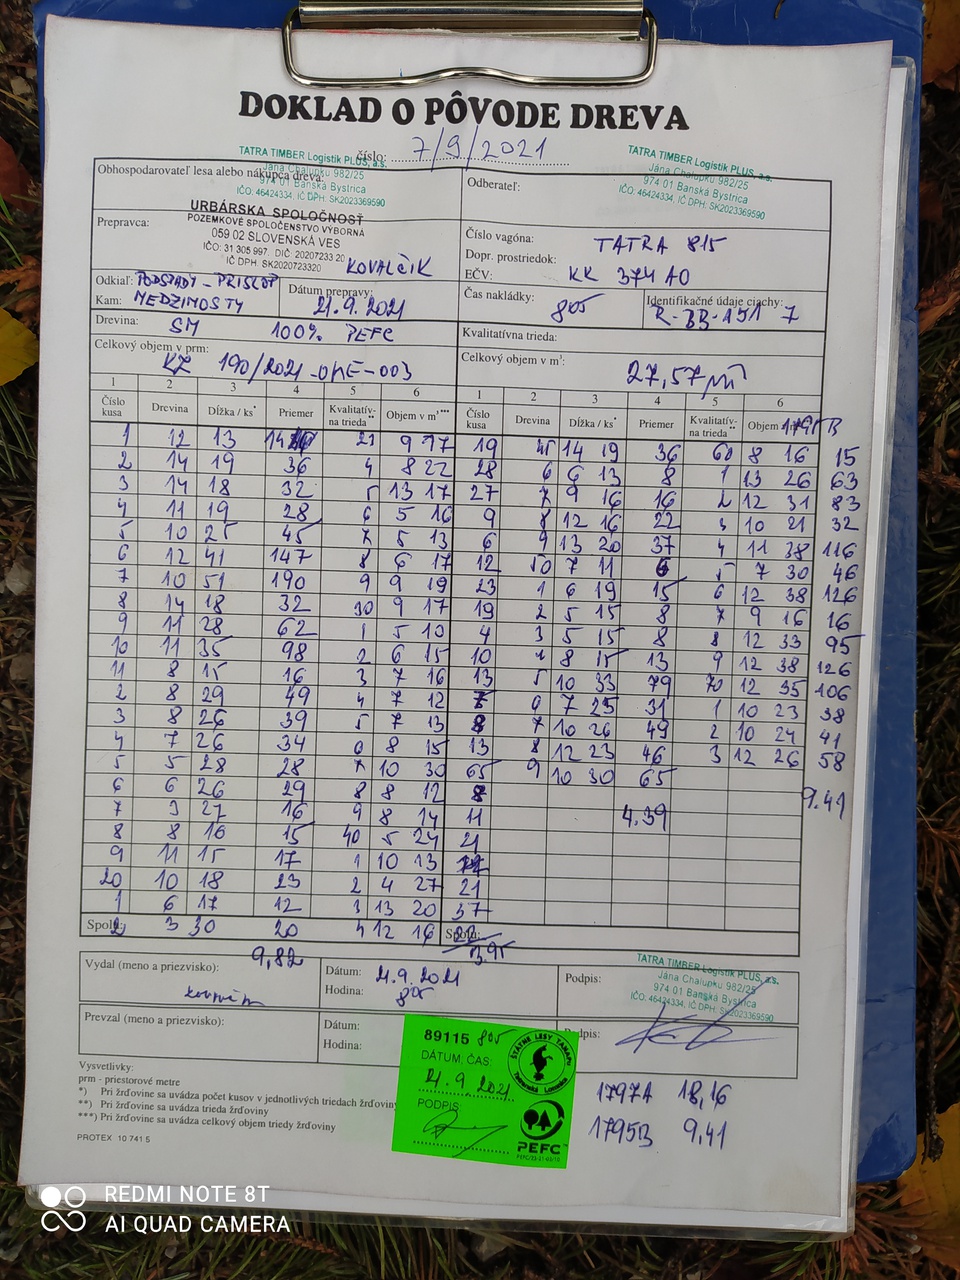 DOKLAD O PÔVODE DREVA
číslo: 7/9/2021
TATRA TIMBER Logistik PLUS, a.s.
Jána Chalupku 982/25
974 01 Banská Bystrica
IČO: 46424334, IČ DPH: SK2023369590
Obhospodarovateľ lesa alebo nákupca dreva:
URBÁRSKA SPOLOČNOSŤ
POZEMKOVÉ SPOLOČENSTVO VÝBORNÁ
059 02 SLOVENSKÁ VES
IČO: 31 305 997. DIČ: 2020723320
IČ DPH: SK2020723320
Odberateľ:
TATRA TIMBER Logistik PLUS, a.s.
Jána Chalupku 982/25
974 01 Banská Bystrica
IČO: 46424334, IČ DPH: SK2023369590
Prepravca: KOVALČIK
Číslo vagóna:
Dopr. prostriedok: TATRA 815
EČV: KK 374 AO
Odkiaľ: PODSPADY - PRISLOP
Kam: MEDZIMOSTY
Dátum prepravy: 21.9.2021
Čas nakládky: 805
Identifikačné údaje ciachy:
R-BB-151 7
Drevina: SM 100% PEFC
Kvalitatívna trieda:
Celkový objem v prm:
KZ 190/2021-OME-003
Celkový objem v m³: 27,57 m³
1 2 3 4 5 6 1 2 3 4 5 6
Číslo kusa Drevina Dĺžka / ks* Priemer Kvalitatív- na trieda** Objem v m³*** Číslo kusa Drevina Dĺžka / ks* Priemer Kvalitatív- na trieda** Objem 1795 B
1 12 13 21 9 17 19 14 19 36 60 8 16 15
2 14 19 36 4 8 22 28 6 6 13 8 1 13 26 63
3 14 18 32 5 13 17 27 7 9 16 16 2 12 31 83
4 11 19 28 6 5 16 9 8 12 16 22 3 10 21 32
5 10 25 45 7 5 13 6 9 13 20 37 4 11 38 116
6 12 41 147 8 6 17 12 50 7 11 6 5 7 30 46
7 10 51 190 9 9 19 23 1 6 19 15 6 12 38 126
8 14 18 32 30 9 17 19 2 5 15 8 7 9 16 16
9 11 28 62 1 5 10 4 3 5 15 8 8 12 33 95
10 11 35 98 2 6 15 10 4 8 15 13 9 12 38 126
11 8 15 16 3 7 16 13 5 10 33 79 70 12 35 106
2 8 29 49 4 7 12 7 6 7 25 31 1 10 23 38
3 8 26 39 5 7 13 8 7 10 26 49 2 10 24 41
4 7 26 34 6 8 15 13 8 12 23 46 3 12 26 58
5 5 28 28 7 10 30 65 9 10 30 65
6 6 26 29 8 8 12 8 9.41
7 3 27 16 9 8 14 11 4.39
8 8 16 15 40 5 24 21
9 11 15 17 1 10 13
20 10 18 23 2 4 27 21
1 6 17 12 3 13 20 37
Spolu: 2 3 30 20 4 12 16 22 Spolu:
9,82 3.95
Vydal (meno a priezvisko):
Dátum: 21.9.2021
Hodina: 805
Podpis:
TATRA TIMBER Logistik PLUS, a.s.
Jána Chalupku 982/25
974 01 Banská Bystrica
IČO: 46424334, IČ DPH: SK2023369590
Prevzal (meno a priezvisko):
Dátum:
Hodina:
Podpis:
Vysvetlivky:
prm - priestorové metre
*) Pri žrďovine sa uvádza počet kusov v jednotlivých triedach žrďoviny
**) Pri žrďovine sa uvádza trieda žrďoviny
***) Pri žrďovine sa uvádza celkový objem triedy žrďoviny
PROTEX 10 741 5
89115 805
DÁTUM, ČAS:
21.9.2021
PODPIS:
ŠTÁTNE LESY TANAPu
Tatranská Lomnica
PEFC
1797A 18,16
1795B 9,41
REDMI NOTE 8T
AI QUAD CAMERA